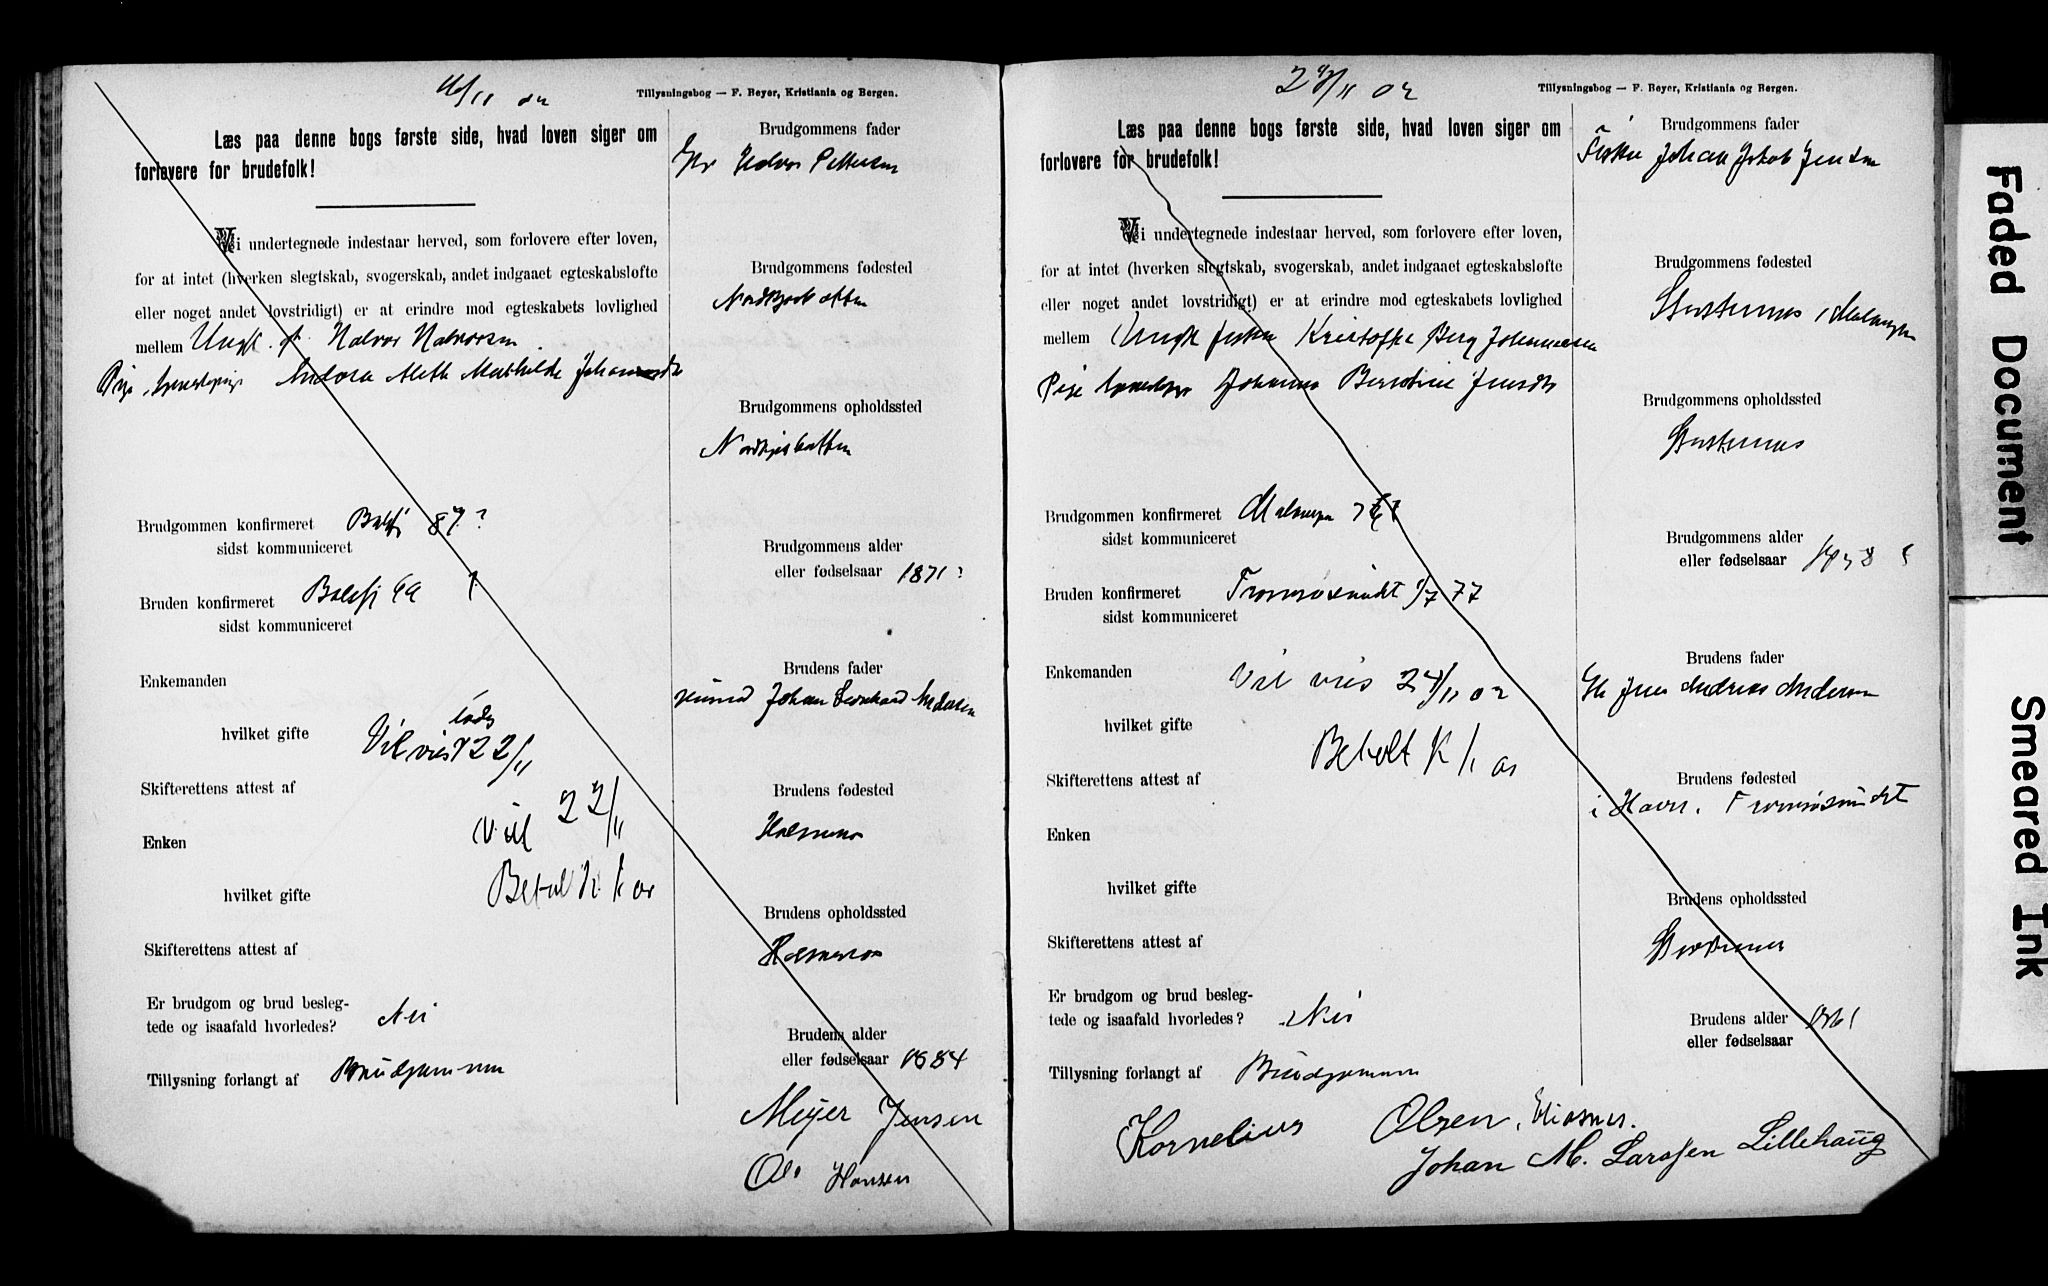 16/11 02
Tillysningsbog — F. Beyer, Kristiania og Bergen.
Læs paa denne bogs første side, hvad loven siger om
forlovere for brudefolk!
Vi undertegnede indestaar herved, som forlovere efter loven,
for at intet (hverken slegtskab, svogerskab, andet indgaaet egteskabsløfte
eller noget andet lovstridigt) er at erindre mod egteskabets lovlighed
mellem Ungk. f. Halvor Halvorsen
Pige, Andora Aleth Mathilde
Brudgommen konfirmeret Balsfj 87?
sidst kommuniceret
Bruden konfirmeret Balsfj 99 ?
sidst kommuniceret
Enkemanden
hvilket gifte
Vil vies 22/11
Skifterettens attest af
Vil 22/11
Enken
hvilket gifte
Skifterettens attest af
Er brudgom og brud besleg-
tede og isaafald hvorledes? Nei
Tillysning forlangt af Brudgommen
Brudgommens fader
Halvor Pettersen
Brudgommens fødested
Nordkjosbotten
Brudgommens opholdssted
Nordkjosbotten
Brudgommens alder
eller fødselsaar 1871?
Brudens fader
Johan
Brudens fødested
Holmenes
Brudens opholdssted
Holmenes
Brudens alder
eller fødselsaar 1884
Meyer Jensen
Ole Hansen
11 02
Tillysningsbog — F. Beyer, Kristiania og Bergen.
Læs paa denne bogs første side, hvad loven siger om
forlovere for brudefolk!
Vi undertegnede indestaar herved, som forlovere efter loven,
for at intet (hverken slegtskab, svogerskab, andet indgaaet egteskabsløfte
eller noget andet lovstridigt) er at erindre mod egteskabets lovlighed
mellem Ungk fisker Kristoffer Berg Johannesen
Pige Johanna Berntine Jensdtr
Brudgommen konfirmeret Malangen
sidst kommuniceret
Bruden konfirmeret Tromsøsundet 1/7 77
sidst kommuniceret
Enkemanden
Vil vies 24/11 02
hvilket gifte
Betalt K
Skifterettens attest af
Enken
hvilket gifte
Skifterettens attest af
Er brudgom og brud besleg-
tede og isaafald hvorledes? Nei
Tillysning forlangt af Brudgommen
Brudgommens fader
Fisker Johan Jakob Jensen
Brudgommens fødested
Storsteinnes i Malangen
Brudgommens opholdssted
Storsteinnes
Brudgommens alder
eller fødselsaar
Brudens fader
Jens Andreas Andersen
Brudens fødested
i Havn. Tromsøsundet
Brudens opholdssted
Storsteinnes
Brudens alder 1861
eller fødselsaar
Kornelius Olsen, Eliasnes.
Johan M. Larssen Lillehaug
Faded Document
Smeared Ink